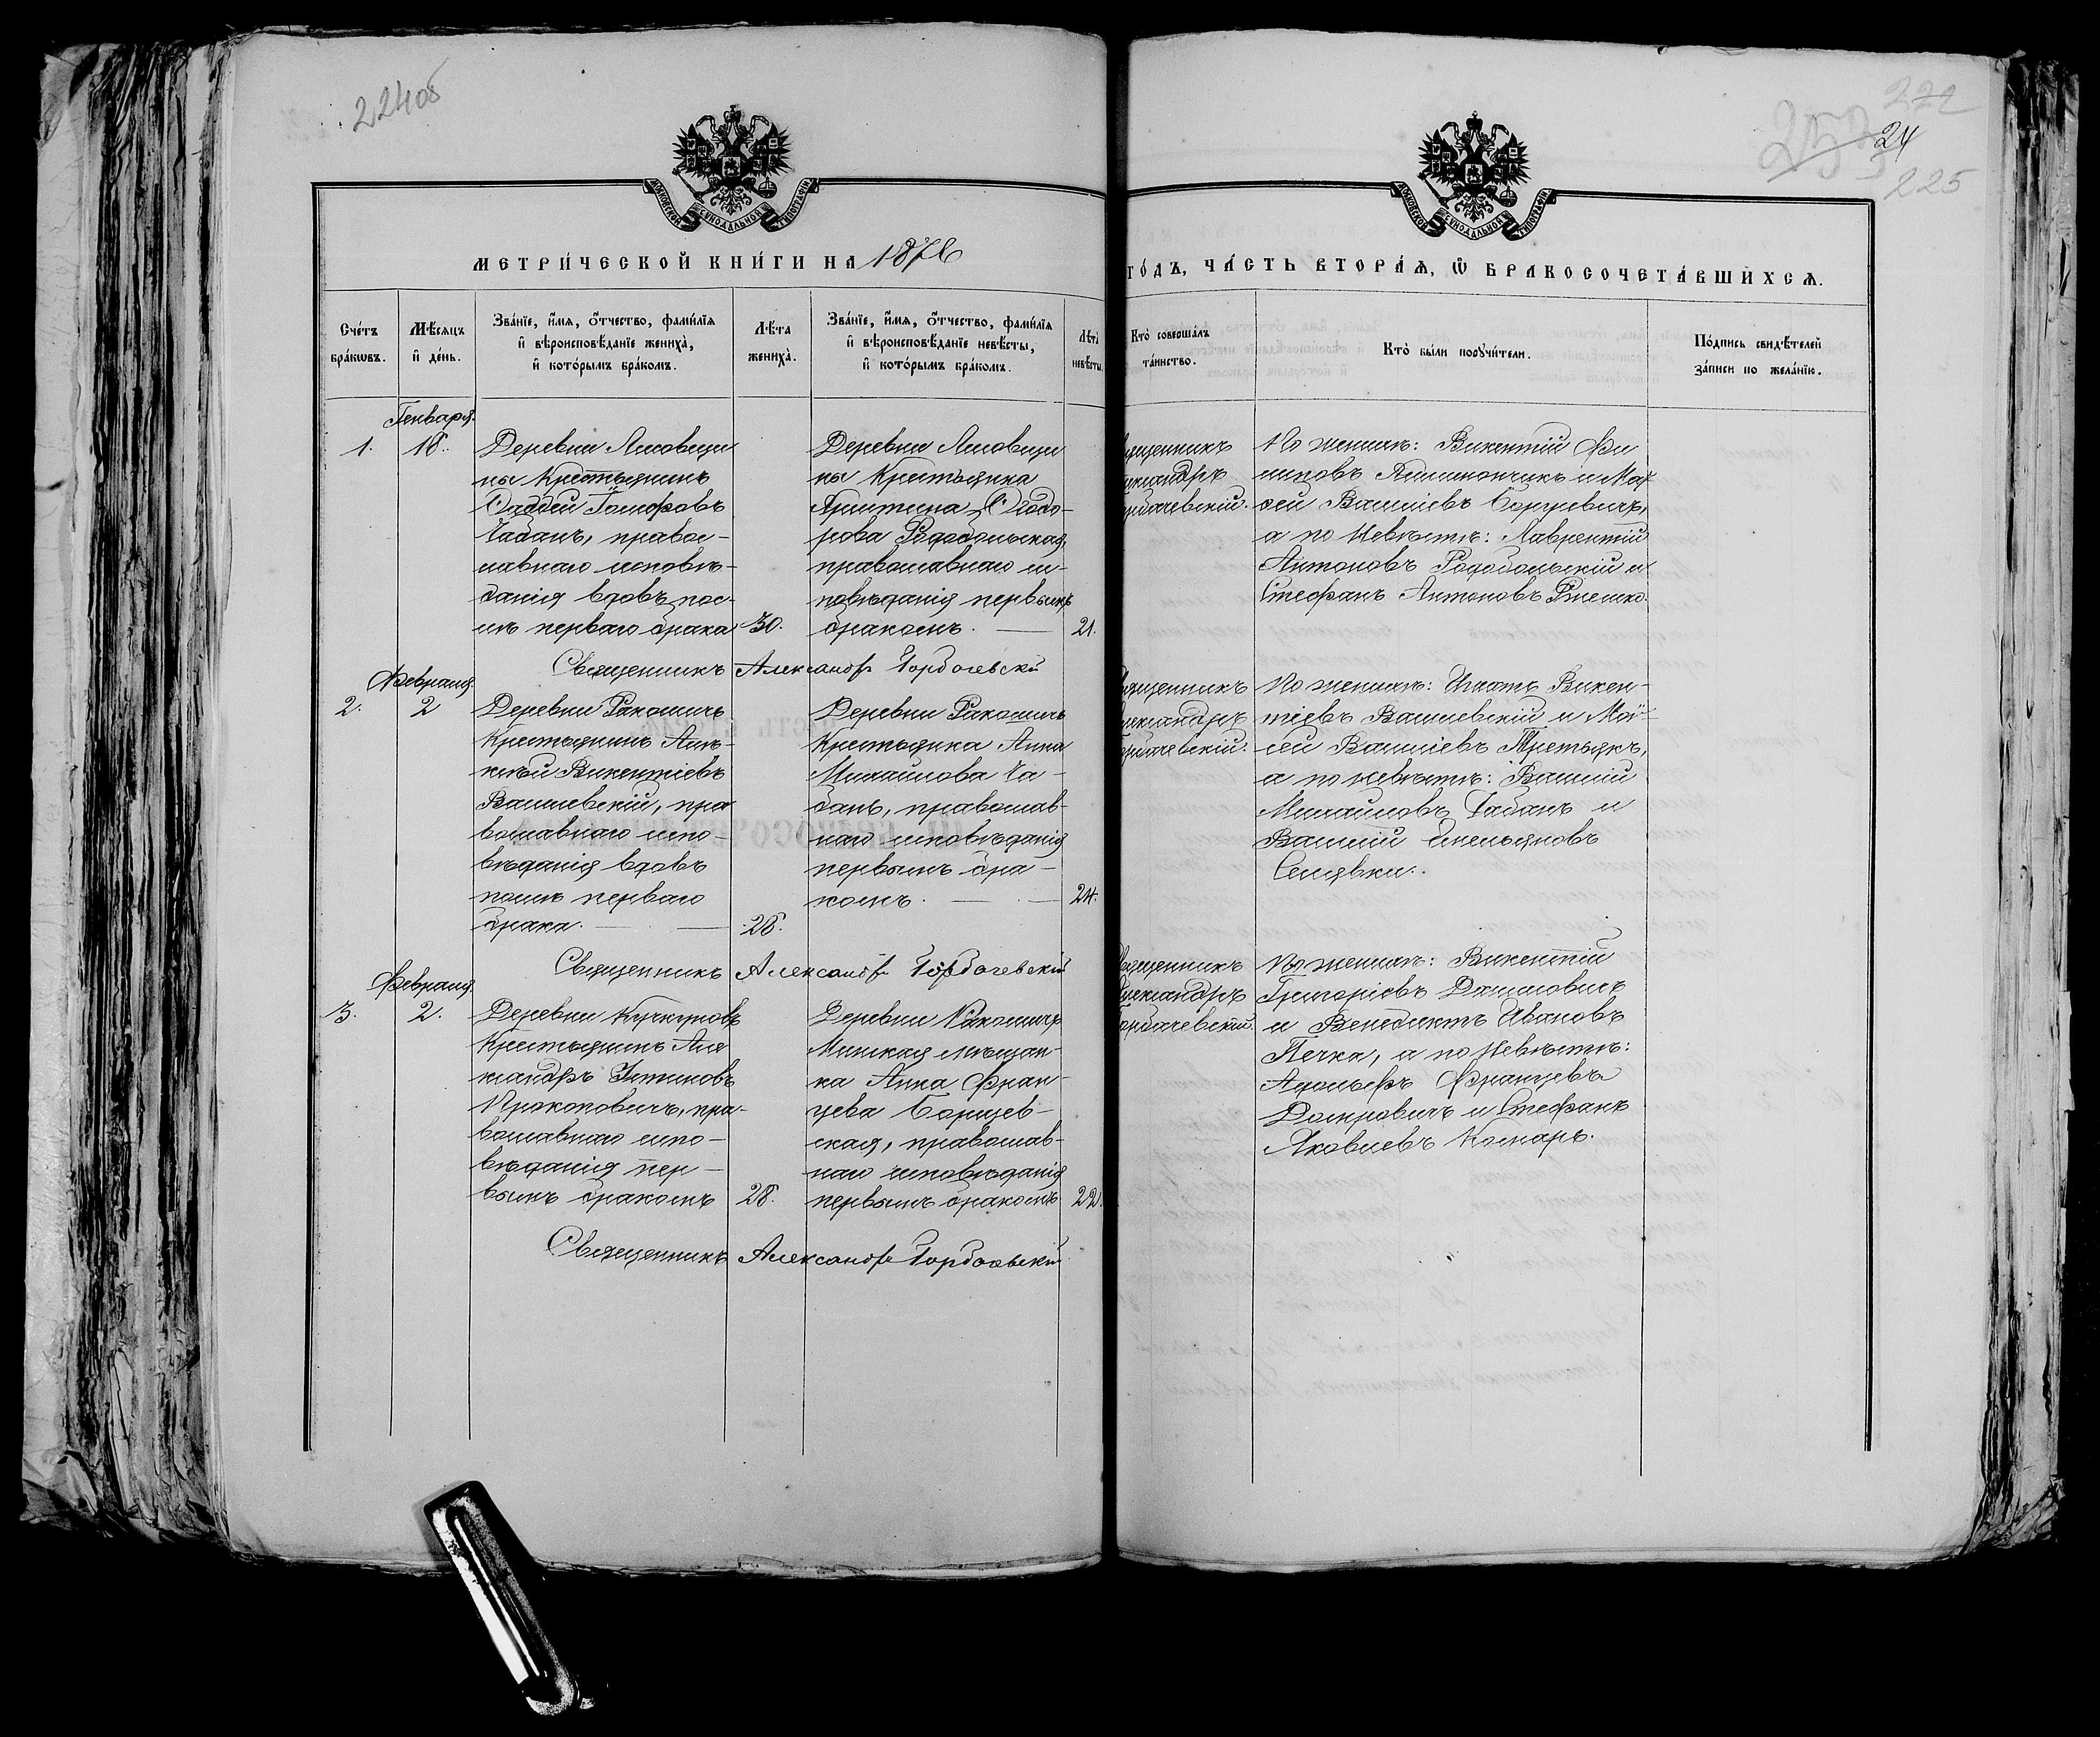 224об
222
24
225
МОСКОВСКОЙ СУНОДАЛЬНОЙ ТИПОГРАФІИ
МОСКОВСКОЙ СУНОДАЛЬНОЙ ТИПОГРАФІИ
МЕТРИ́ЧЕСКОЙ КНИ́ГИ НА 1876
ГО́ДЪ, ЧА́СТЬ ВТОРА́Ѧ, Ѽ БРАКОСОЧЕТА́ВШИХСѦ.
Сче́тъ бра́кѡвъ.
Мѣ́сѧцъ и҆ де́нь.
Зва́нїе, и҆́мѧ, ѻ҆́тчество, фамі́лїѧ и҆ вѣроисповѣ́данїе жениха̀, и҆ кото́рымъ бра́комъ.
Лѣ́та жениха̀.
Зва́нїе, и҆́мѧ, ѻ҆́тчество, фамі́лїѧ и҆ вѣроисповѣ́данїе невѣ́сты, и҆ кото́рымъ бра́комъ.
Лѣ́та невѣ́сты.
Кто̀ соверша́лъ та́инство.
Кто̀ бы́ли порꙋчи́тели.
По́дпись свидѣ́телей за́писи по жела́нїю.
Генваря.
1.
18.
Деревни Лисовщи
ны Крестьянинъ
Фаддей Іосифовъ
Чабанъ, правос-
лавнаго исповѣ-
данія вдовъ пос-
лѣ перваго брака
30.
Деревни Лисовщи
ны Крестьянка
Христина Ѳеодо-
рова Родобольская,
православнаго ис-
повѣданія первымъ
бракомъ.
21.
ященникъ
лександръ
орбачевскій.
По женихѣ: Викентій Фи
липовъ Пилипончикъ и Мой-
сей Василіевъ Борцевичъ,
а по невѣстѣ: Лаврентій
Антоновъ Родобольскій и
Стефанъ Антоновъ
Священникъ Александръ Горбачевскій
Февраля.
2.
2
Деревни Ракошичъ
Крестьянинъ Алѣ-
ксѣй Викентіевъ
Василевскій, пра
вославнаго испо-
вѣданія вдовъ
послѣ перваго
брака.
28.
Деревни Ракошичъ
Крестьянка Анна
Михайлова Ча-
банъ, православ-
наго исповѣданія
первымъ бра-
комъ.
24.
ященникъ
лександръ
орбачевскій.
По женихѣ: Игнатъ Викен-
тіевъ Василевскій и Мой-
сей Василіевъ Третьякъ,
а по невѣстѣ: Василій
Михайловъ Чабанъ и
Василій Емельяновъ
Священникъ Александръ Горбачевскій
Февраля.
3.
2.
Деревни Кучкуновъ
Крестьянинъ Але
ксандръ Устиновъ
Прокоповичъ, пра-
вославнаго испо-
вѣданія пер-
вымъ бракомъ
28.
Деревни Ракошичъ
Минская мѣщан-
ка Анна Фран-
цева Борщев-
ская, православ-
наго исповѣданія
первымъ бракомъ
22.
ященникъ
лександръ
орбачевскій.
По женихѣ: Викентій
Григоріевъ Даниловичъ
и Венедиктъ Ивановъ
Печка, а по невѣстѣ:
Адольфъ Францевъ
Домровичъ и Стефанъ
Яковлевъ Комаръ.
Священникъ Александръ Горбачевскій